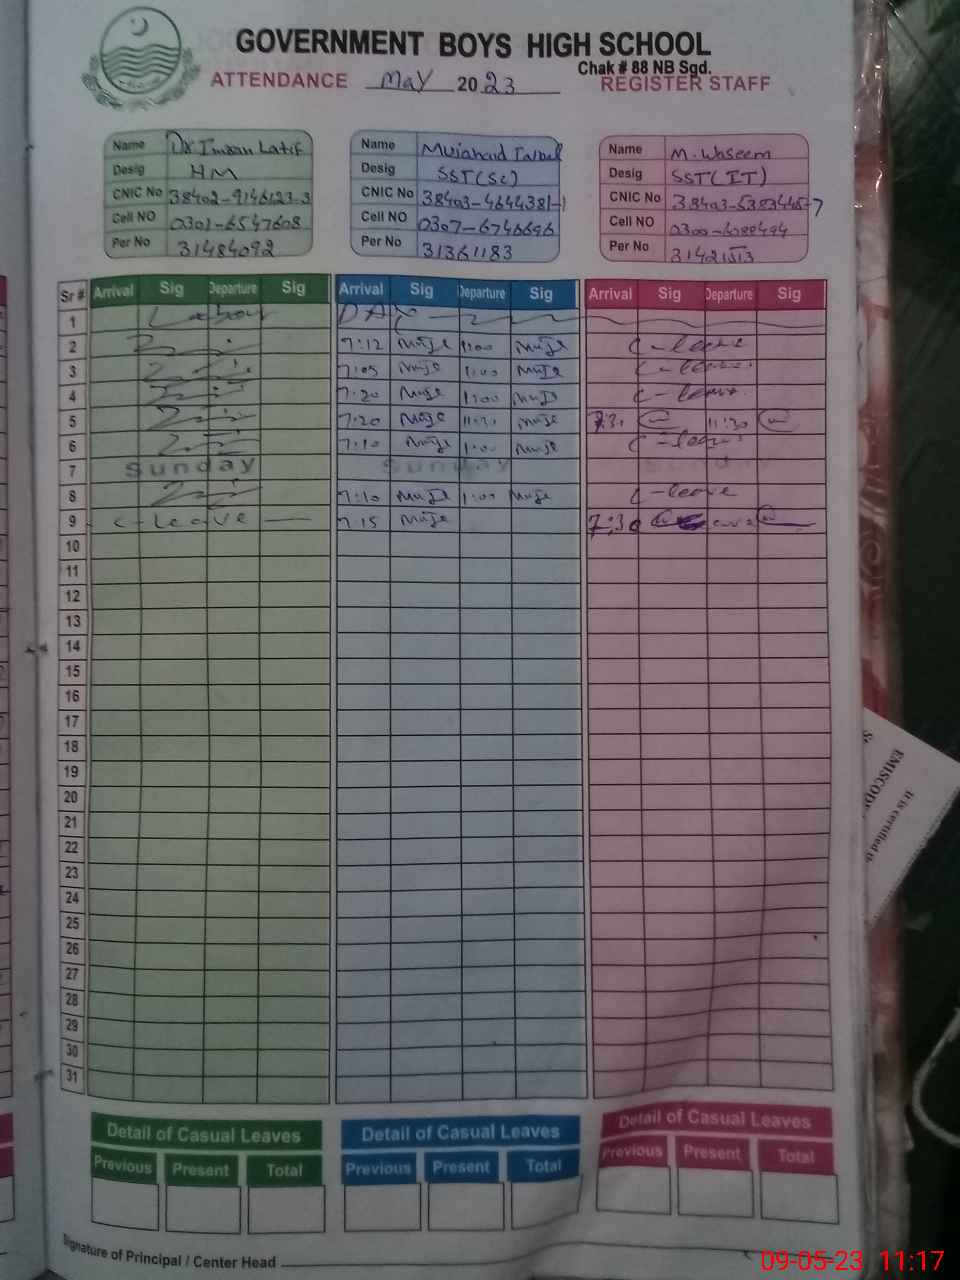 GOVERNMENT BOYS HIGH SCHOOL
Chak # 88 NB Sgd.
ATTENDANCE May 2023 REGISTER STAFF
Name Dr Imran Latif
Desig HM
CNIC No 38402-9146123-3
Cell NO 0301-6547608
Per No 31484092
Name Mujahid
Desig SST(Sc)
CNIC No 38403-4644381-1
Cell NO 0307-6746696
Per No 31361183
Name M. Waseem
Desig SST(IT)
CNIC No
Cell NO
Per No
Sr # Arrival Sig Departure Sig Arrival Sig Departure Sig Arrival Sig Departure Sig
1 Labour DAY
2 7:12 1:00 C-leave
3 7:05 1:00 C-leave
4 7:20 1:00 C-leave
5 7:20 11:30 7:30 11:30
6 7:10 1:00 C-leave
7 Sunday Sunday Sunday
8 7:10 1:00 C-leave
9 C-Leave 7:15 7:30
10
11
12
13
14
15
16
17
18
19
20
21
22
23
24
25
26
27
28
29
30
31
Detail of Casual Leaves Detail of Casual Leaves Detail of Casual Leaves
Previous Present Total Previous Present Total Previous Present Total
Signature of Principal / Center Head
EMISCODE
It is certified
09-05-23 11:17